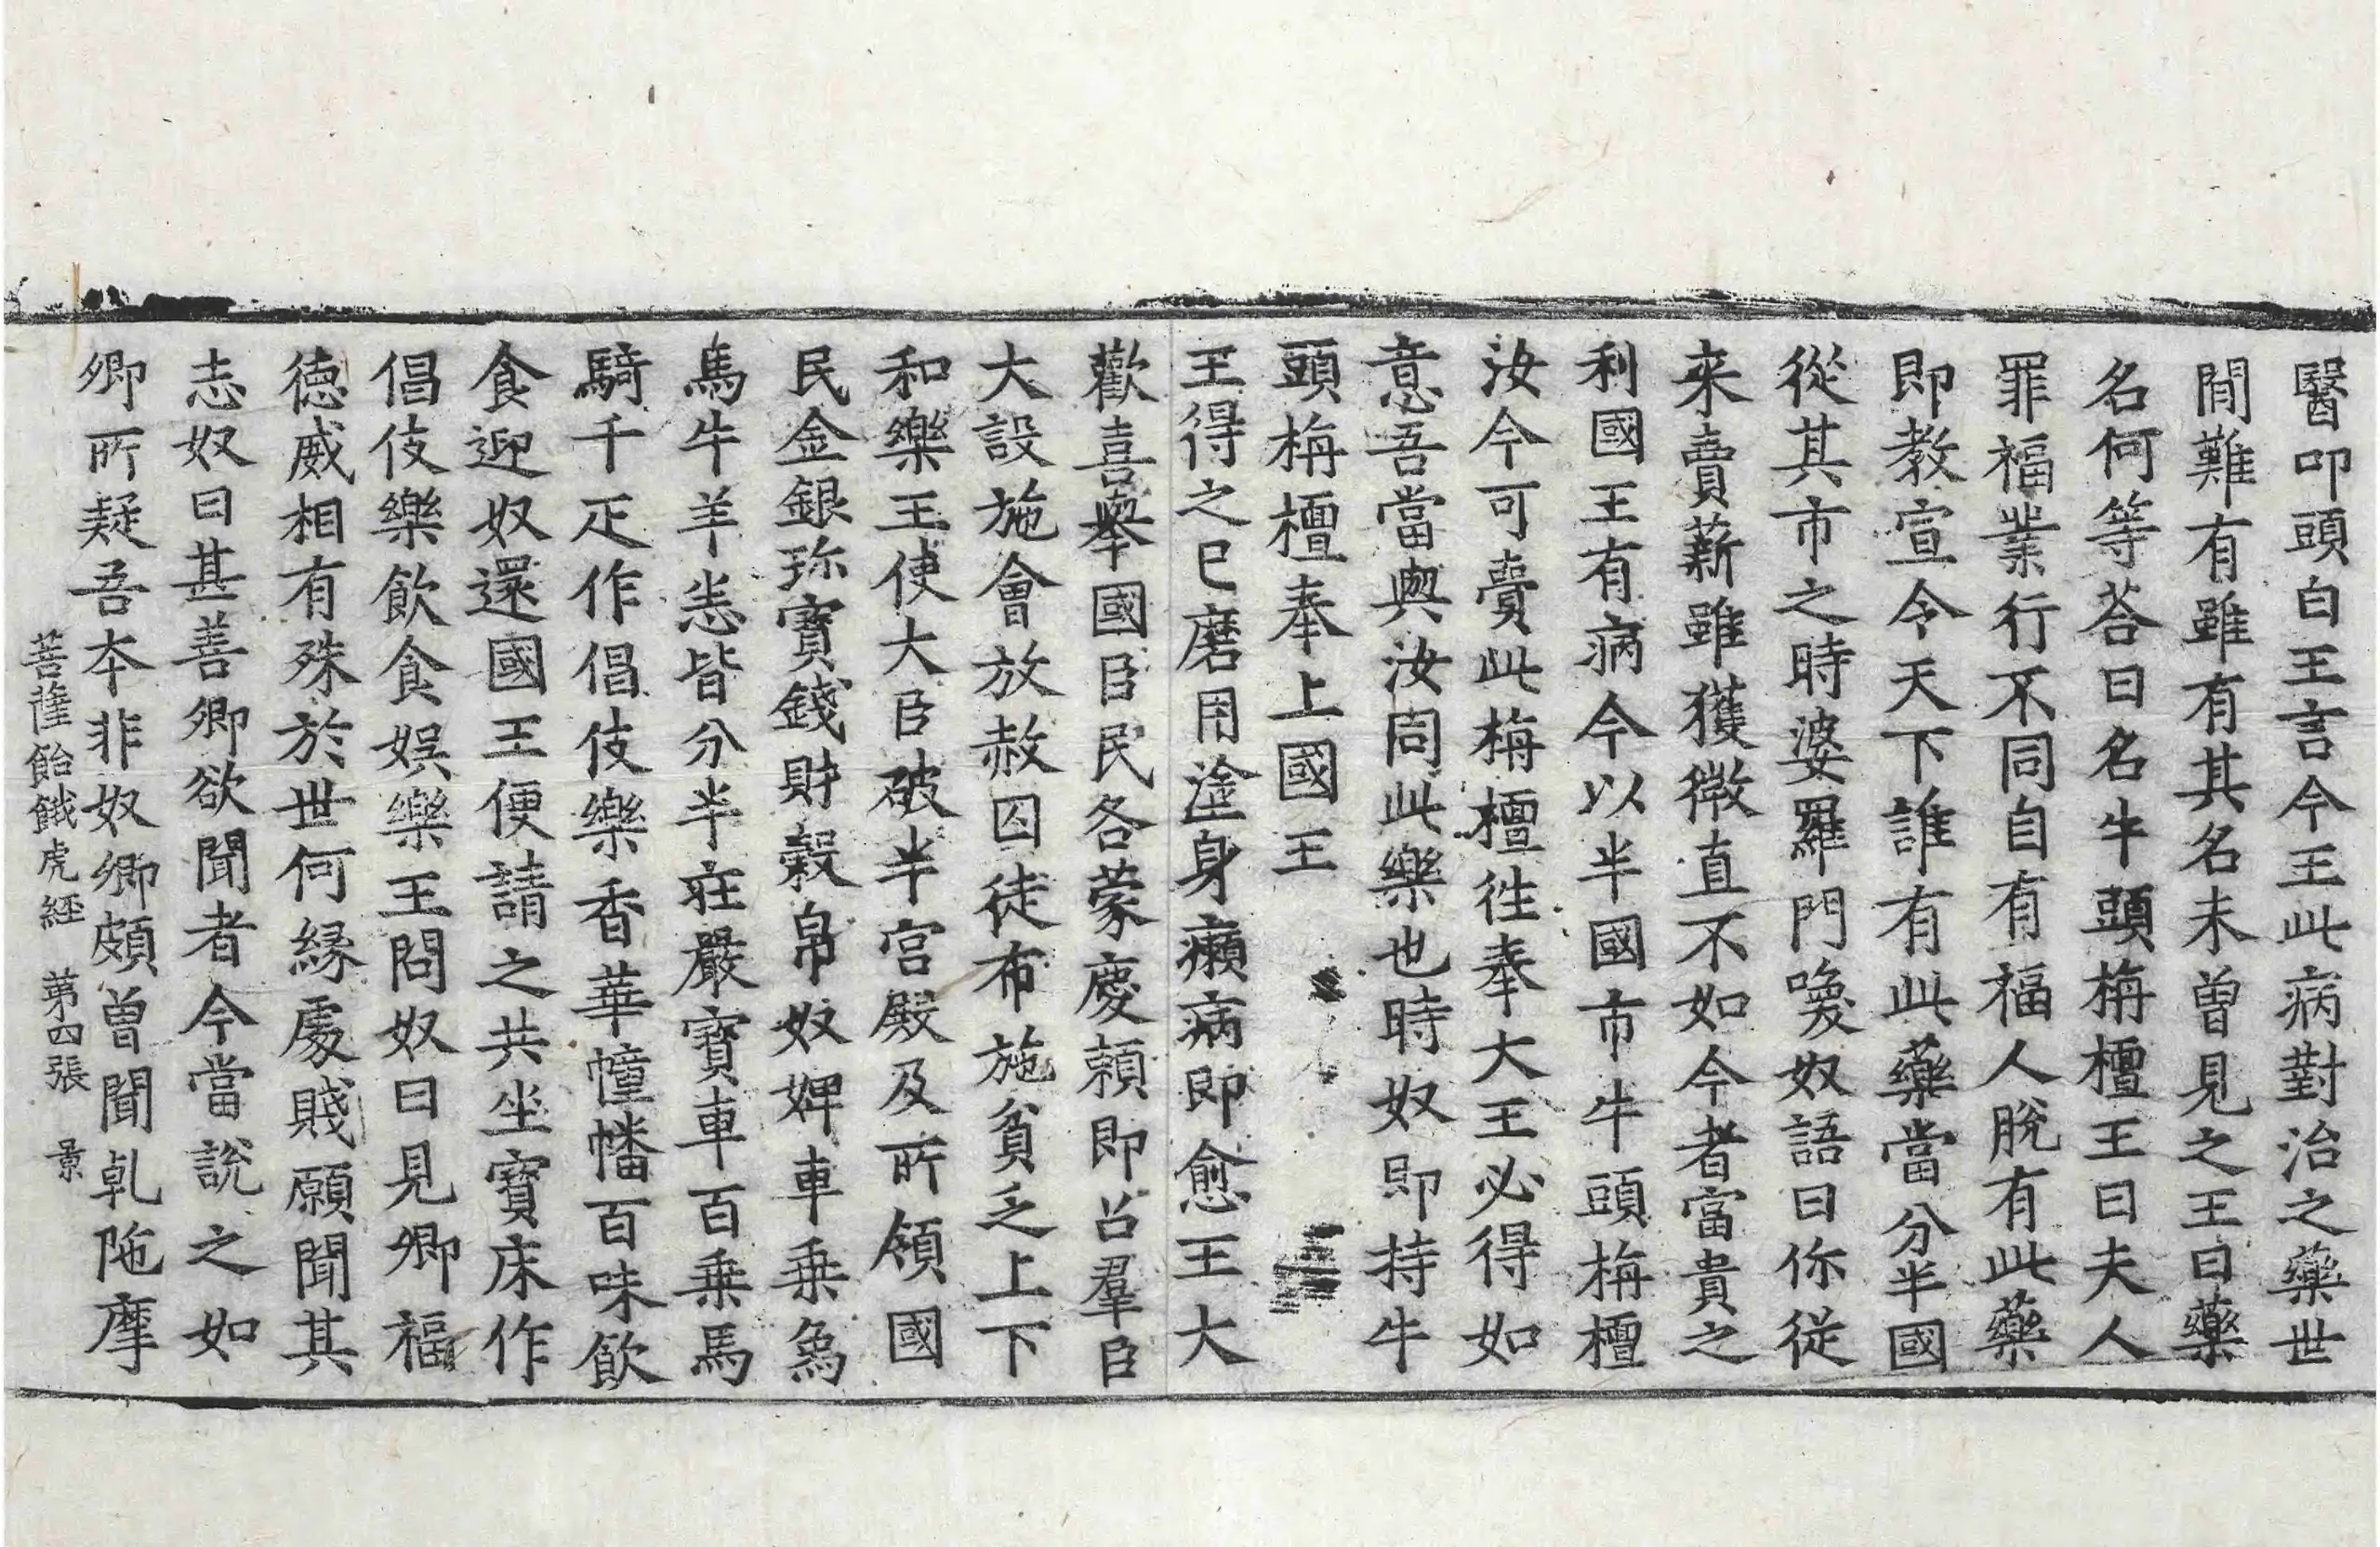 醫叩頭白王言今王此病對治之藥世
間難有雖有其名未曽見之王曰藥
名何等荅曰名牛頭栴檀王曰夫人
罪福業行不同自有福人脫有此藥
即教宣令天下誰有此藥當分半國
從其市之時婆羅門喚奴語曰你從
来賣薪雖獲微直不如今者富貴之
利國王有病今以半國市牛頭栴檀
汝今可賷此栴檀徃奉大王必得如
意吾當與汝同此樂也時奴即持牛
頭栴檀奉上國王
王得之已磨用塗身癩病即愈王大
歡喜舉國臣民各蒙慶賴即召羣臣
大設施會放赦囚徒布施貧乏上下
和樂王使大臣破半宫殿及所領國
民金銀珎寳錢財穀帛奴婢車乗象
馬牛羊悉皆分半莊嚴寳車百乗馬
騎千疋作倡伎樂香華幢幡百味飲
食迎奴還國王便請之共坐寳床作
倡伎樂飲食娛樂王問奴曰見卿福
徳威相有殊於世何緣處賤願聞其
志奴曰甚善卿欲聞者今當說之如
卿所疑吾本非奴卿頗曽聞乹陁摩
菩薩飴餓虎經 第四張 景